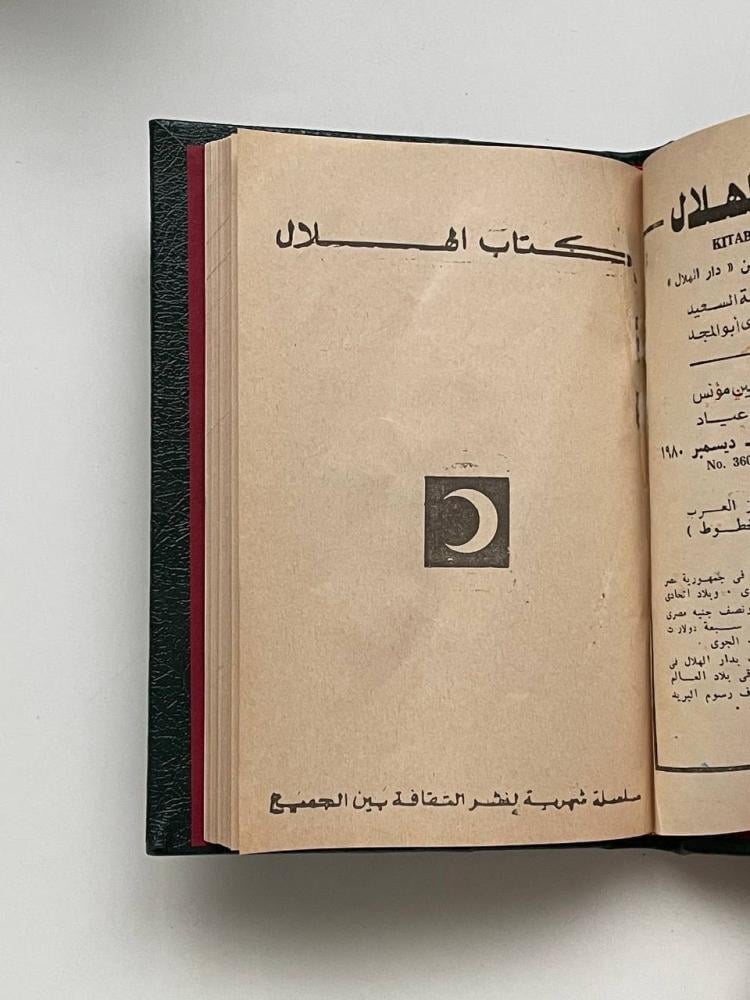 كتاب الهلال
سلسلة شهرية لنشر الثقافة بين الجميع
الهلال
KITAB
« دار الهلال »
السعيد
أبو المجد
مؤنس
عياد
ديسمبر ١٩٨٠
No. 360
العرب
خطوط )
فى جمهورية مصر
وبلاد اتحادى
ونصف جنيه مصرى
سبعة دولارت
الجوى ٠
بدار الهلال فى
بلاد العالم
رسوم البريد